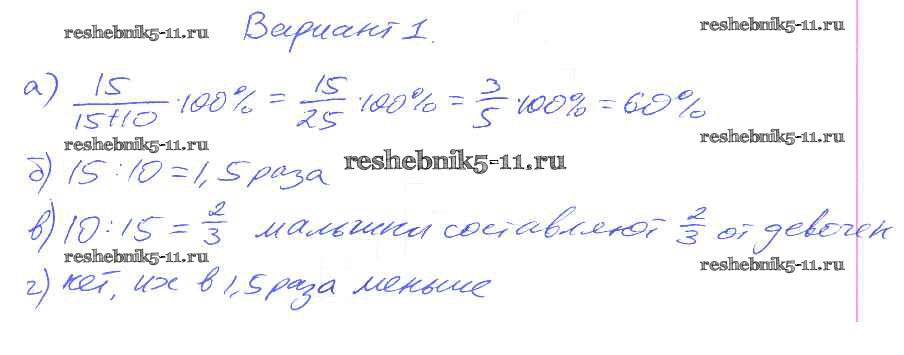 reshebnik5-11.ru Вариант 1. reshebnik5-11.ru
а) 15/(15+10) · 100% = 15/25 · 100% = 3/5 · 100% = 60%
reshebnik5-11.ru reshebnik5-11.ru reshebnik5-11.ru
б) 15 : 10 = 1,5 раза
в) 10 : 15 = 2/3 малышки составляют 2/3 от девочек
reshebnik5-11.ru reshebnik5-11.ru
г) нет, их в 1,5 раза меньше